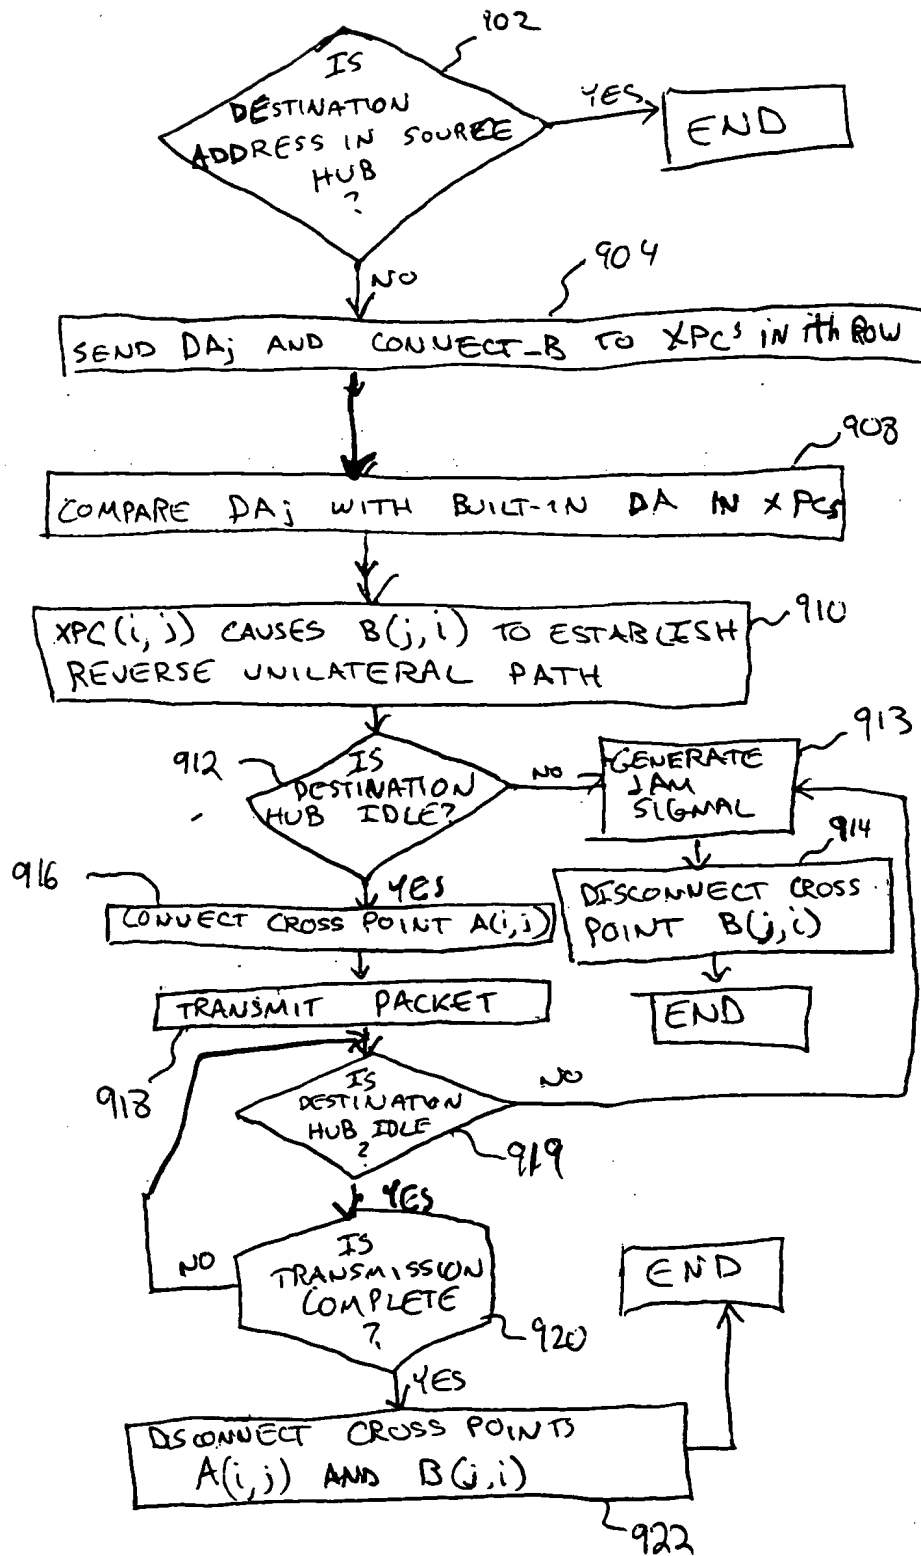 902
IS
DESTINATION
ADDRESS IN SOURCE
HUB
?
YES
END
NO
904
SEND DAj AND CONNECT-B TO XPCs IN ith ROW
908
COMPARE DAj WITH BUILT-IN DA IN XPCs
910
XPC(i,j) CAUSES B(j,i) TO ESTABLISH
REVERSE UNILATERAL PATH
912
IS
DESTINATION
HUB IDLE?
NO
913
GENERATE
JAM
SIGNAL
914
DISCONNECT CROSS
POINT B(j,i)
END
YES
916
CONNECT CROSS POINT A(i,j)
TRANSMIT PACKET
918
IS
DESTINATION
HUB IDLE
?
NO
919
YES
IS
TRANSMISSION
COMPLETE
?
NO
920
YES
END
DISCONNECT CROSS POINTS
A(i,j) AND B(j,i)
922